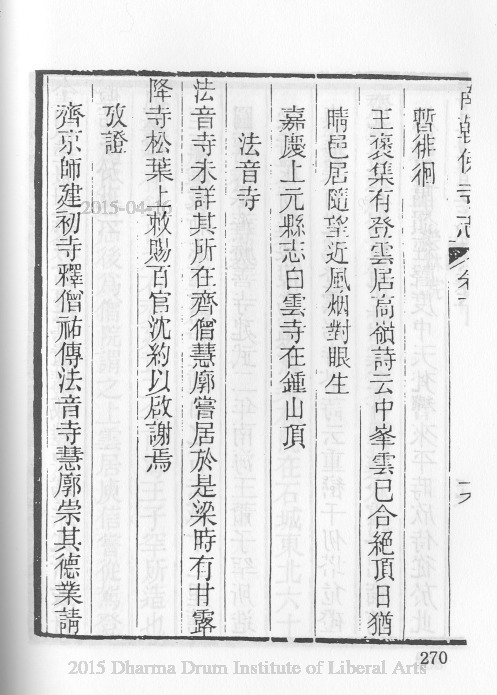 暫徘徊
王褒集有登雲居高嶺詩云中峯雲已合絕頂日猶
晴邑居隨望近風烟對眼生
嘉慶上元縣志白雲寺在鍾山頂
法音寺
法音寺未詳其所在齊僧慧廓嘗居於是梁時有甘露
降寺松葉上敕賜百官沈約以啟謝焉
攷證
齊京師建初寺釋僧祐傳法音寺慧廓崇其德業請
270
2015-04-
2015 Dharma Drum Institute of Liberal Arts